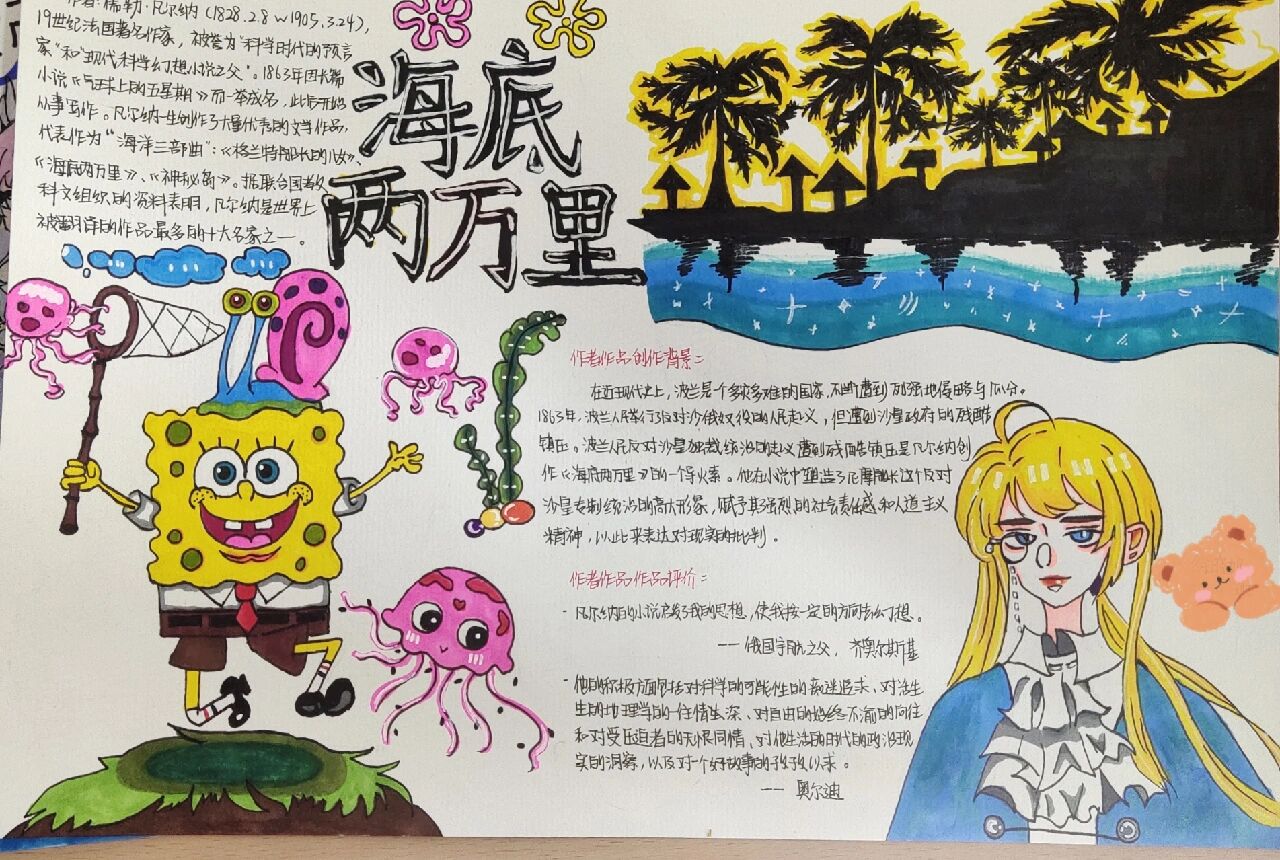 作者：儒勒·凡尔纳（1828.2.8~1905.3.24），
19世纪法国著名作家，被誉为“科学时代的预言
家”和“现代科学幻想小说之父”。1863年因长篇
小说《气球上的五星期》而一举成名，此后开始
从事写作。凡尔纳一生创作了大量优秀的文学作品，
代表作为“海洋三部曲”：《格兰特船长的儿女》、
《海底两万里》、《神秘岛》。据联合国教
科文组织的资料表明，凡尔纳是世界上
被翻译的作品最多的十大名家之一。
海底
两万里
作者作品创作背景：
在近现代史上，波兰是个多灾多难的国家，不断遭到列强地侵略与瓜分。
1863年，波兰人民举行了反对沙俄奴役的人民起义，但遭到沙皇政府的残酷
镇压。波兰人民反对沙皇独裁统治的起义遭到残酷镇压是凡尔纳创
作《海底两万里》的一个导火索。他在小说中塑造了尼摩船长这个反对
沙皇专制统治的高大形象，赋予其强烈的社会责任感和人道主义
精神，以此来表达对现实的批判。
作者作品作品评价：
- 凡尔纳的小说启发了我的思想，使我按一定的方向去幻想。
—— 俄国宇航之父，齐奥尔斯基
- 他的积极方面包括对科学的可能性的高迷追求、对活生
生的地理学的一往情深、对自由的始终不渝的向往
和对受压迫者的无限同情、对他生活的时代的政治现
实的洞察，以及对一个好故事的孜孜以求。
—— 奥尔迪